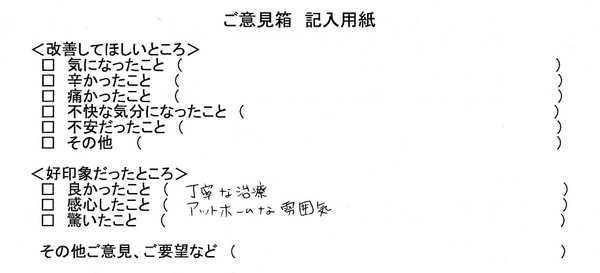 ご意見箱 記入用紙
＜改善してほしいところ＞
□ 気になったこと （ ）
□ 辛かったこと （ ）
□ 痛かったこと （ ）
□ 不快な気分になったこと （ ）
□ 不安だったこと （ ）
□ その他 （ ）
＜好印象だったところ＞
□ 良かったこと （ 丁寧な治療 ）
□ 感心したこと （ アットホームな雰囲気 ）
□ 驚いたこと （ ）
その他ご意見、ご要望など （ ）